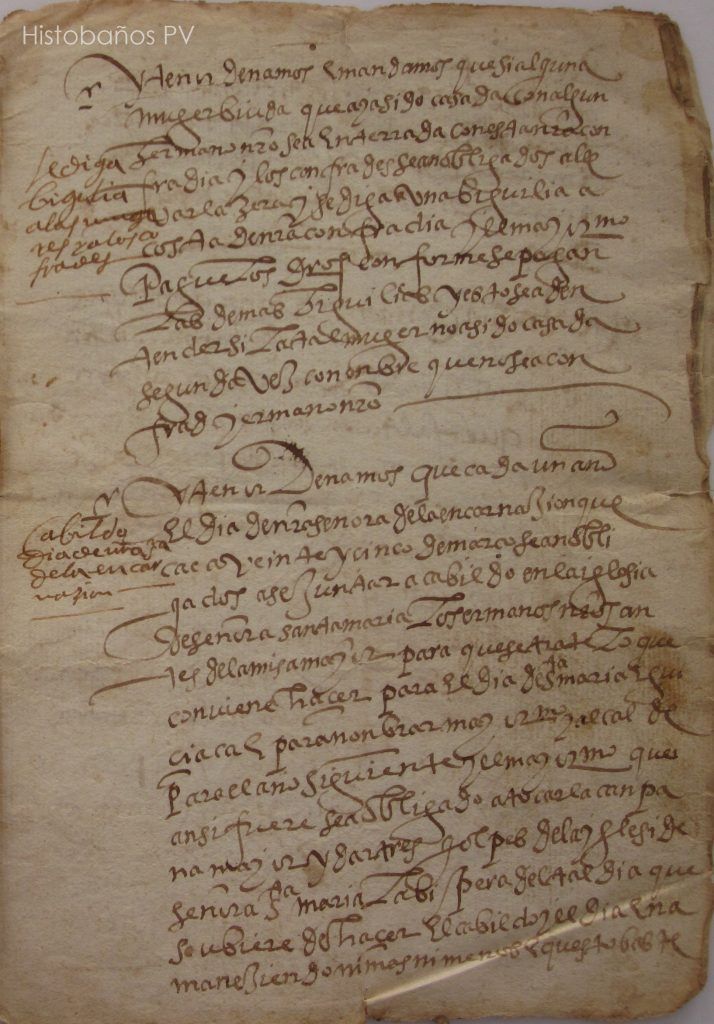 Histobaños PV
Yten hordenamos y mandamos que si alguna
muger biuda que aya sido casada con algun
hermano nro sea enterrada con esta nra con
fradia y los confrades sean obligados a lle
var la zera y se diga una bigilia a
costa de nra confradia y el mayormo
pague los conforme se pagan
las demas bigilias y esto sea de en
tender si la tal muger no a sido casada
segunda vez con onbre que no sea con
frad y ermano nro
se diga
bigilia
a las muge
res y a los co
frades
Yten hordenamos que cada un año
el dia de nra señora de la encarnazion que
cae a veinte y cinco de março sean obli
gados a se juntar a cabildo en la iglesia
de señora santa maria los ermanos nros an
tes de la misa mayor para que se trate lo que
conviene hacer para el dia de sta maria
y para nonbrar mayormo y alcalde
para el año siguiente y el mayormo que
ansi fuere sea obligado a tocar la canpa
na mayor y dar tres golpes de la yglesi de
señora sta maria la bispera del tal dia que
se ubiere de hacer el cabildo y el dia en a
maneziendo ni mas ni menos y questo baste
Cabildo
dia de nra sa
de la encar
nazion